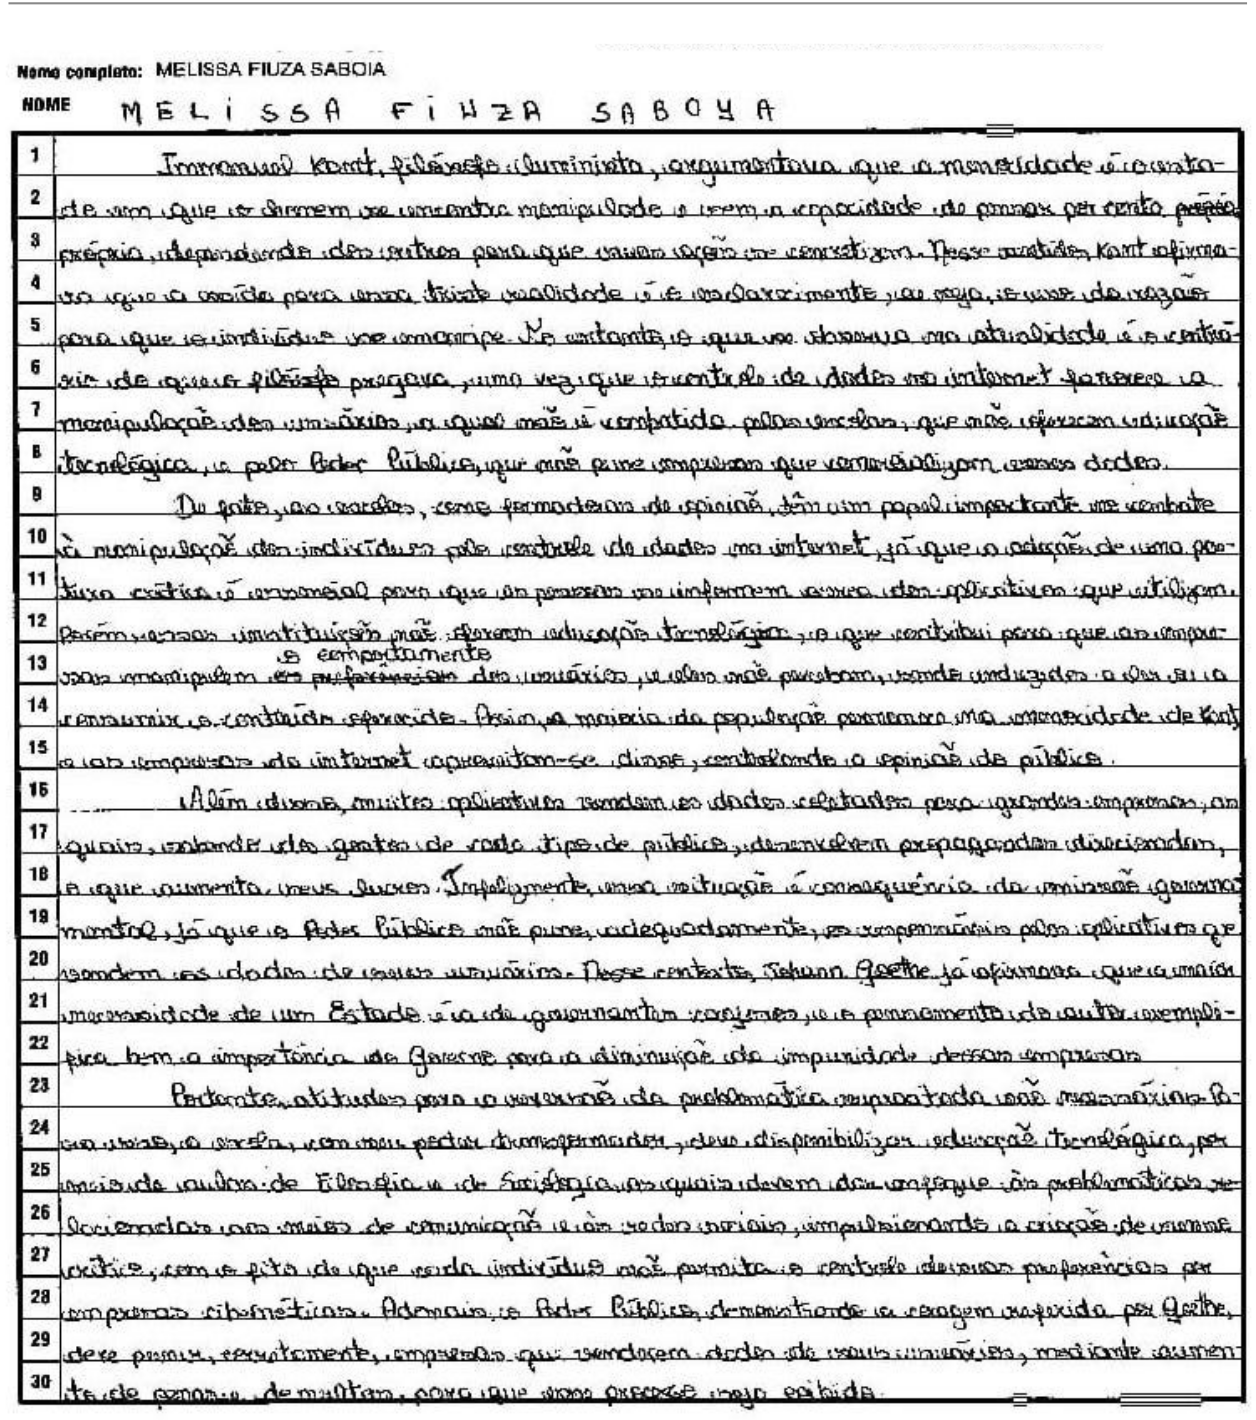 Nome completo: MELISSA FIUZA SABOIA
NOME MELISSA FIUZA SABOYA
1 Immanuel Kant, filósofo iluminista, argumentava que a menoridade é o esta-
2 do em que o homem se encontra manipulado e sem a capacidade de pensar por conta própria
3 própria, dependendo dos outros para que suas ações se concretizem. Nesse sentido, Kant afirma-
4 va que a saída para essa triste realidade é o esclarecimento, ou seja, o uso da razão
5 para que o indivíduo se emancipe. No entanto, o que se observa na atualidade é o contrá-
6 rio do que o filósofo pregava, uma vez que o controle de dados na internet favorece a
7 manipulação dos usuários, a qual não é combatida pelas escolas, que não oferecem educação
8 tecnológica, e pelo Poder Público, que não pune empresas que comercializam esses dados.
9 De fato, as escolas, como formadoras de opinião, têm um papel importante no combate
10 à manipulação dos indivíduos pelo controle de dados na internet, já que a adoção de uma pos-
11 tura crítica é essencial para que as pessoas se informem acerca dos aplicativos que utilizam.
12 Porém, essas instituições não oferecem educação tecnológica, o que contribui para que as empre-
o comportamento
13 sas manipulem as preferências dos usuários, e eles não percebam, sendo induzidos a ler ou a
14 consumir o conteúdo oferecido. Assim, a maioria da população permanece na menoridade de Kant
15 e as empresas da internet aproveitam-se disso, controlando a opinião do público.
16 Além disso, muitos aplicativos vendem os dados coletados para grandes empresas, as
17 quais, sabendo dos gostos de cada tipo de público, desenvolvem propagandas direcionadas,
18 o que aumenta seus lucros. Infelizmente, essa situação é consequência da omissão governa-
19 mental, já que o Poder Público não pune, adequadamente, os responsáveis pelos aplicativos que
20 vendem os dados de seus usuários. Nesse contexto, Johann Goethe já afirmava que a maior
21 necessidade de um Estado é a de governantes corajosos, e o pensamento do autor exempli-
22 fica bem a importância do Governo para a diminuição da impunidade dessas empresas
23 Portanto, atitudes para a reversão da problemática supracitada são necessárias. Pa-
24 ra isso, a escola, com seu poder transformador, deve disponibilizar educação tecnológica, por
25 meio de aulas de Filosofia e de Sociologia, as quais devem dar enfoque às problemáticas re-
26 lacionadas aos meios de comunicação e às redes sociais, impulsionando a criação de senso
27 crítico, com o fito de que cada indivíduo não permita o controle de suas preferências por
28 empresas cibernéticas. Ademais, o Poder Público, demonstrando a coragem referida por Goethe,
29 deve punir, corretamente, empresas que venderem dados de seus usuários, mediante aumen-
30 to de penas e de multas, para que esse processo seja coibido.